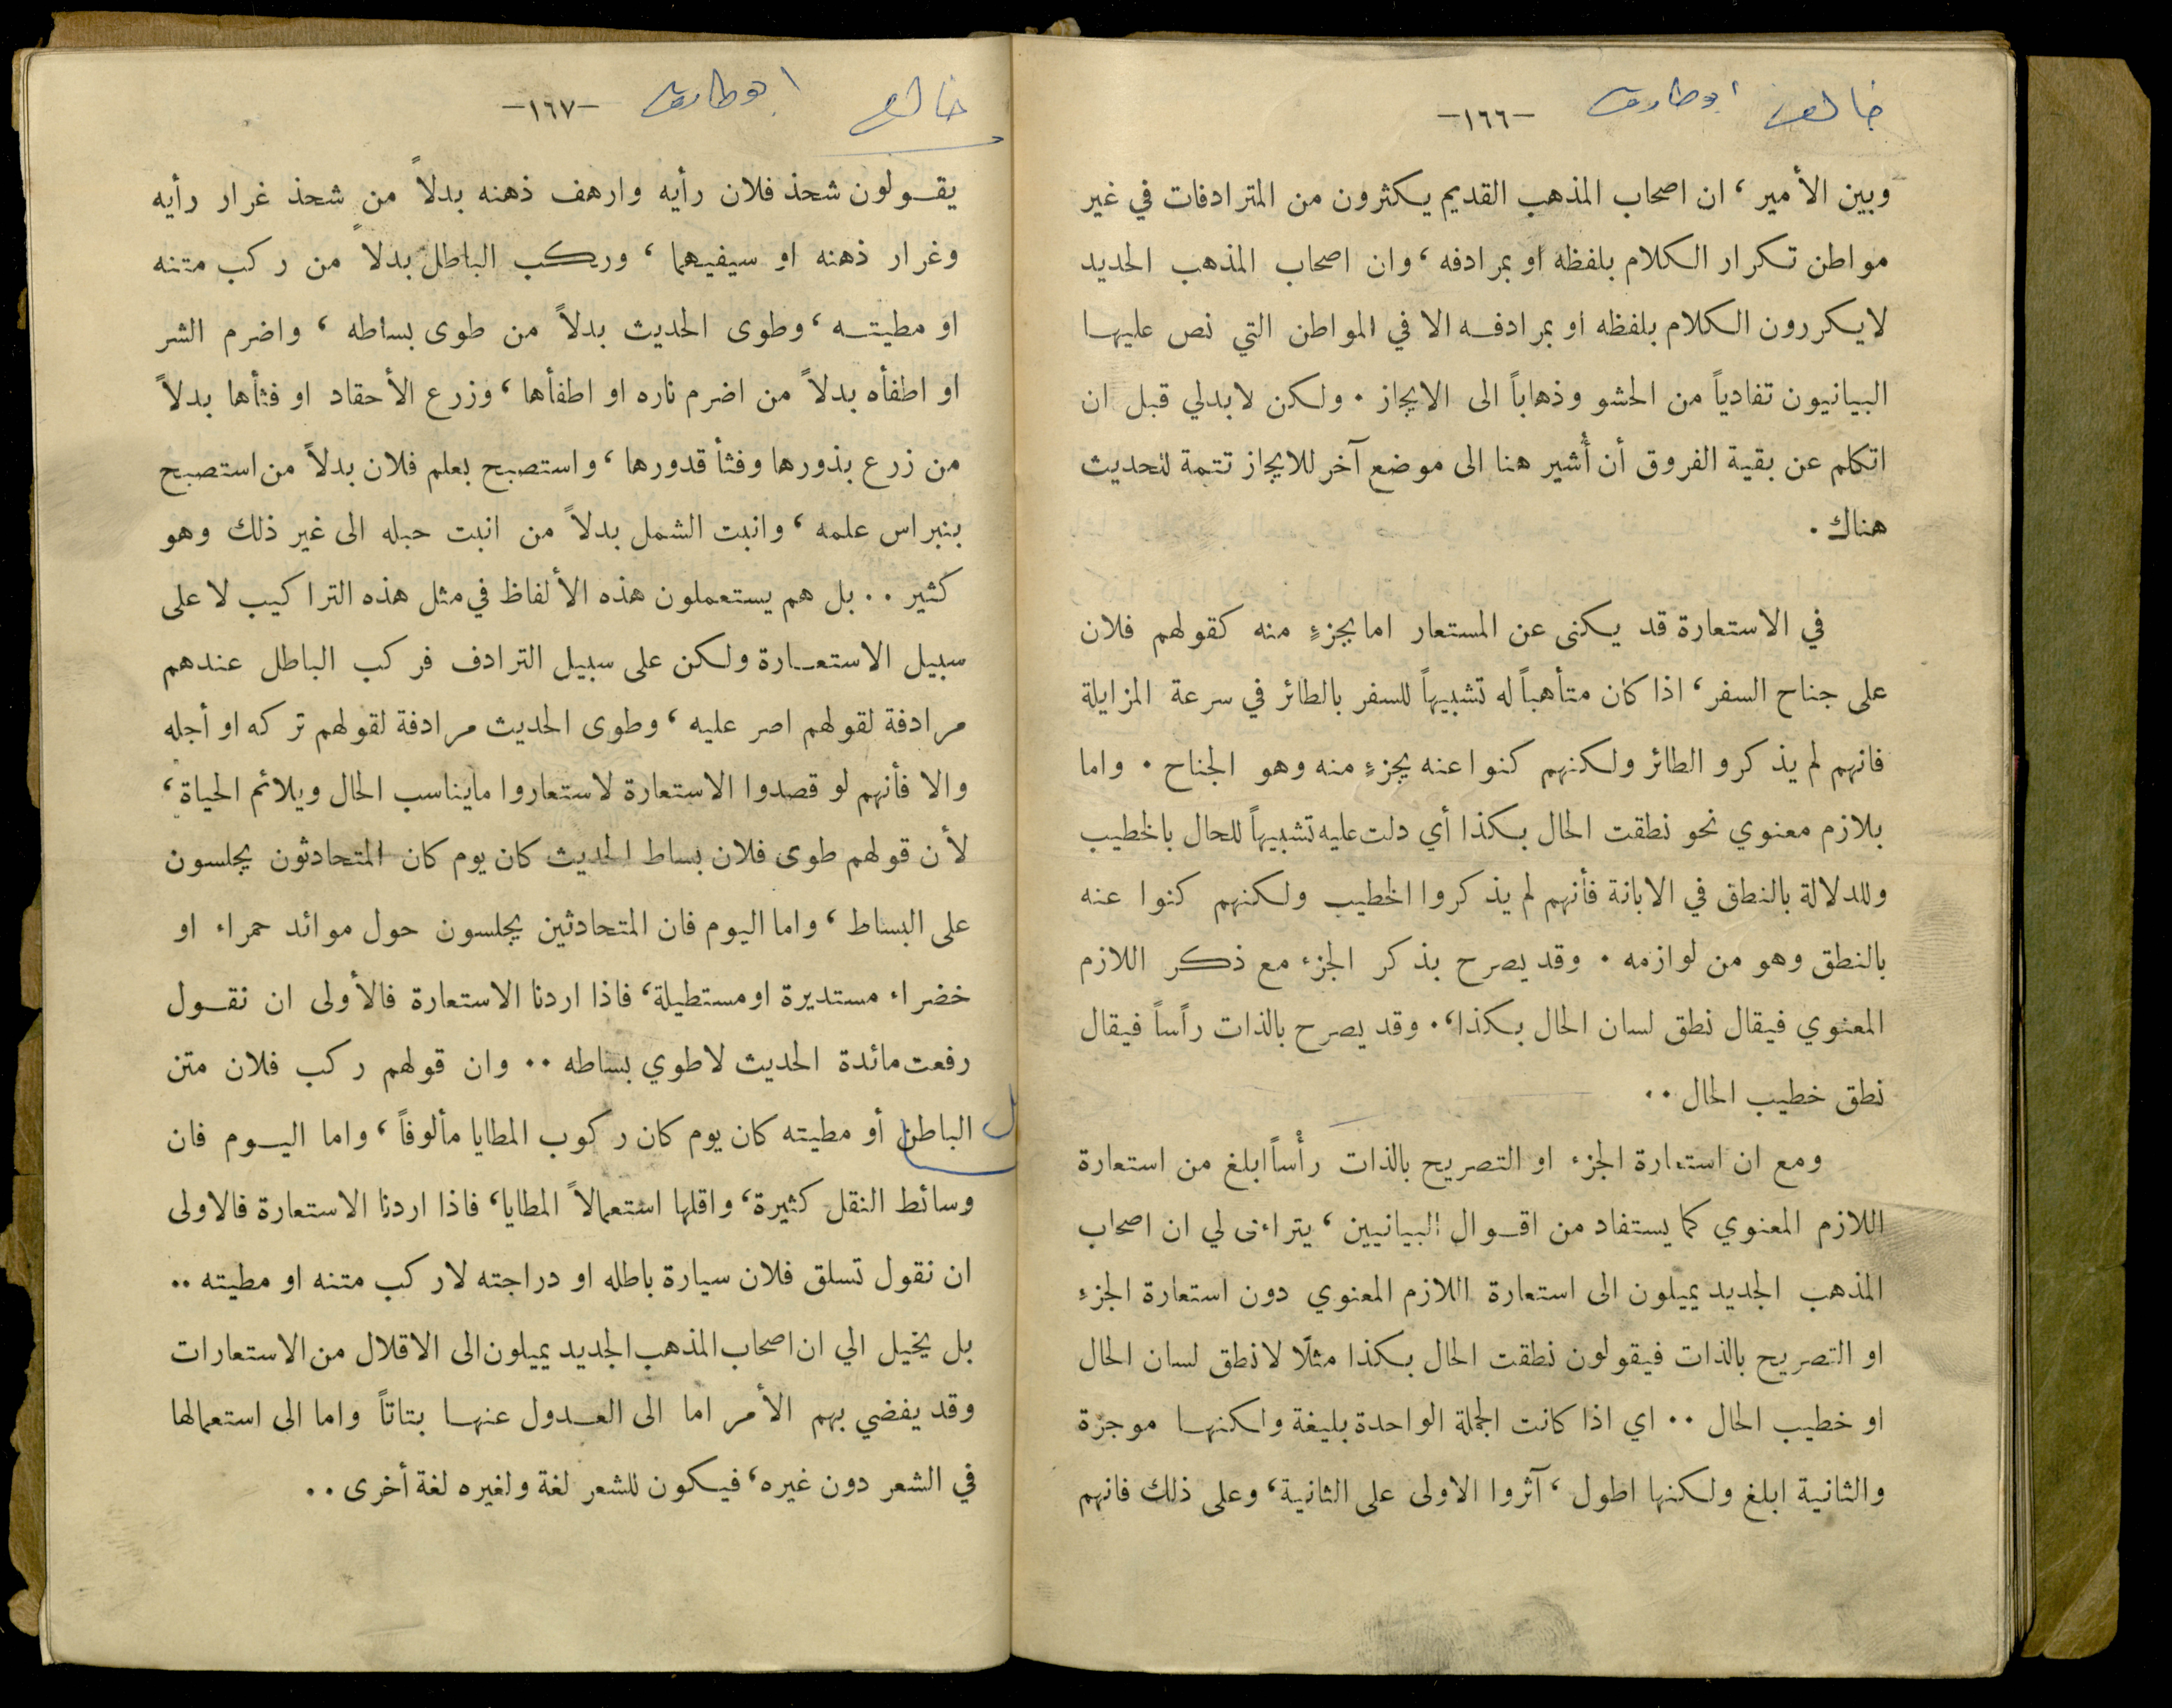 -١٦٦-
وبين الأمير ، ان اصحاب المذهب القديم يكثرون من المترادفات في غير
مواطن تكرار الكلام بلفظه او بمرادفه ، وان اصحاب المذهب الحديد
لايكررون الكلام بلفظه او بمرادفه الا في المواطن التي نص عليها
البيانيون تفادياً من الحشو وذهاباً الى الايجاز . ولكن لابدلي قبل ان
اتكلم عن بقية الفروق أن أشير هنا الى موضع آخر للايجاز تتمة لتحديث
هناك .
في الاستعارة قد يكنى عن المستعار اما بجزءٍ منه كقولهم فلان
على جناح السفر ، اذا كان متأهباً له تشبيهاً للسفر بالطائر في سرعة المزايلة
فانهم لم يذكرو الطائر ولكنهم كنوا عنه بجزءٍ منه وهو الجناح . واما
بلازم معنوي نحو نطقت الحال بكذا أي دلت عليه تشبيهاً للحال بالخطيب
وللدلالة بالنطق في الابانة فأنهم لم يذكروا الخطيب ولكنهم كنوا عنه
بالنطق وهو من لوازمه . وقد يصرح بذكر الجزء مع ذكر اللازم
المعنوي فيقال نطق لسان الحال بكذا، . وقد يصرح بالذات رأساً فيقال
نطق خطيب الحال ..
ومع ان استعارة الجزء او التصريح بالذات رأْساً ابلغ من استعارة
اللازم المعنوي كما يستفاد من اقوال البيانيين ، يتراءى لي ان اصحاب
المذهب الجديد يميلون الى استعارة اللازم المعنوي دون استعارة الجزءِ
او التصريح بالذات فيقولون نطقت الحال بكذا مثلًا لانطق لسان الحال
او خطيب الحال .. اي اذا كانت الجملة الواحدة بليغة ولكنها موجزة
والثانية ابلغ ولكنها اطول ، آثروا الاولى على الثانية ، وعلى ذلك فانهم
خالص ابو طارق -١٦٧-
يقولون شحذ فلان رأيه وارهف ذهنه بدلاً من شحذ غرار رأيه
وغرار ذهنه او سيفيهما ، وركب الباطل بدلاً من ركب متنه
او مطيته ، وطوى الحديث بدلاً من طوى بساطه ، واضرم الشر
او اطفأه بدلاً من اضرم ناره او اطفأها ، وزرع الأحقاد او فثأها بدلاً
من زرع بذورها وفثأ قدورها ، واستصبح بعلم فلان بدلاً من استصبح
بنبراس علمه ، وانبت الشمل بدلاً من انبت حبله الى غير ذلك وهو
كثير .. بل هم يستعملون هذه الألفاظ في مثل هذه التراكيب لا على
سبيل الاستعارة ولكن على سبيل الترادف فركب الباطل عندهم
مرادفة لقولهم اصر عليه ، وطوى الحديث مرادفة لقولهم تركه او أجله
والا فأنهم لو قصدوا الاستعارة لاستعاروا مايناسب الحال ويلائم الحياة ،
لأن قولهم طوى فلان بساط الحديث كان يوم كان المتحادثون يجلسون
على البساط ، واما اليوم فان المتحادثين يجلسون حول موائد حمراء او
خضراء مستديرة او مستطيلة ، فاذا اردنا الاستعارة فالأولى ان نقول
رفعت مائدة الحديث لاطوي بساطه .. وان قولهم ركب فلان متن
ل الباطن أو مطيته كان يوم كان ركوب المطايا مألوفاً ، واما اليوم فان
وسائط النقل كثيرة ، واقلها استعمالاً المطايا ، فاذا اردنا الاستعارة فالاولى
ان نقول تسلق فلان سيارة باطله او دراجته لاركب متنه او مطيته ..
بل يخيل الي ان اصحاب المذهب الجديد يميلون الى الاقلال من الاستعارات
وقد يفضي بهم الأمر اما الى العدول عنها بتاتاً واما الى استعمالها
في الشعر دون غيره ، فيكون للشعر لغة ولغيره لغة أخرى ..